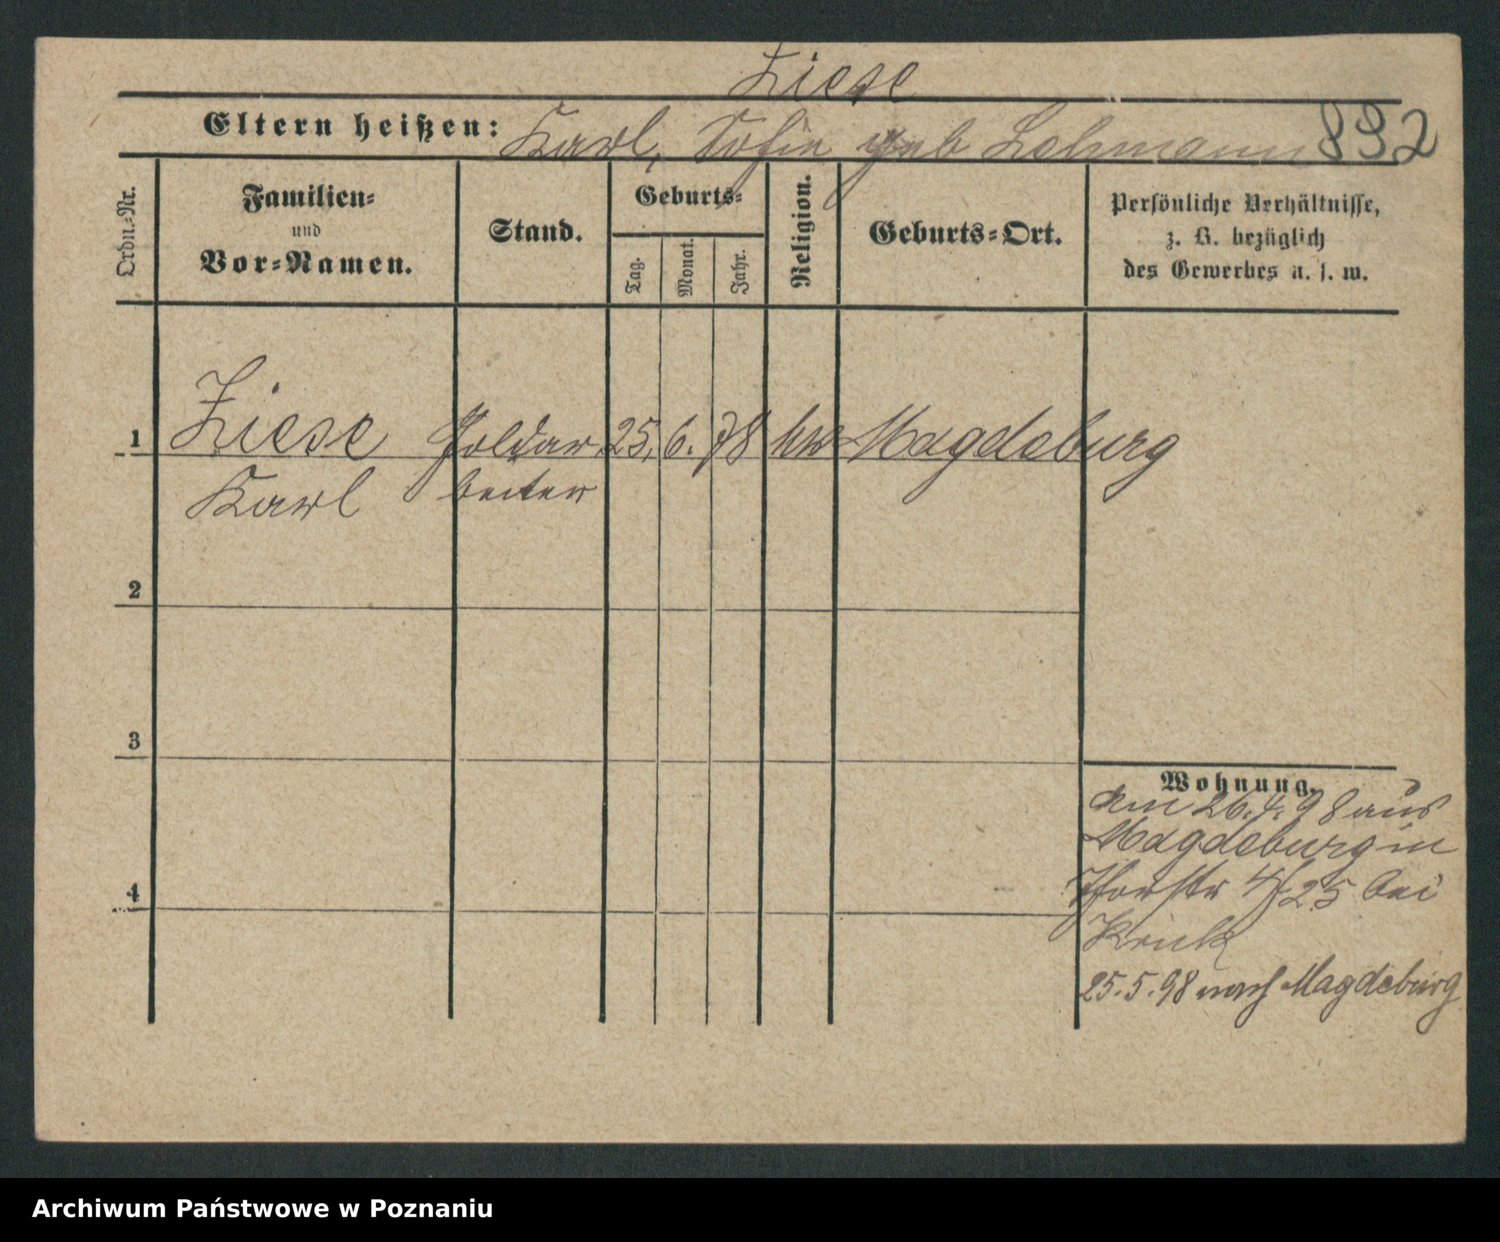 Ziese
Eltern heißen: Karl, Sofie geb Lehmann 832
Ordn.-Nr.
Familien-
und
Vor-Namen.
Stand.
Geburts-
Tag.
Monat.
Jahr.
Religion.
Geburts-Ort.
Persönliche Verhältnisse,
z. B. bezüglich
des Gewerbes u. s. w.
1 Ziese 25. 6. 78 Magdeburg
Karl beiter
2
3
4
Wohnung.
Am 26. 4. 98 aus
Magdeburg in
4/25 bei
25. 5. 98 nach Magdeburg
Archiwum Państwowe w Poznaniu